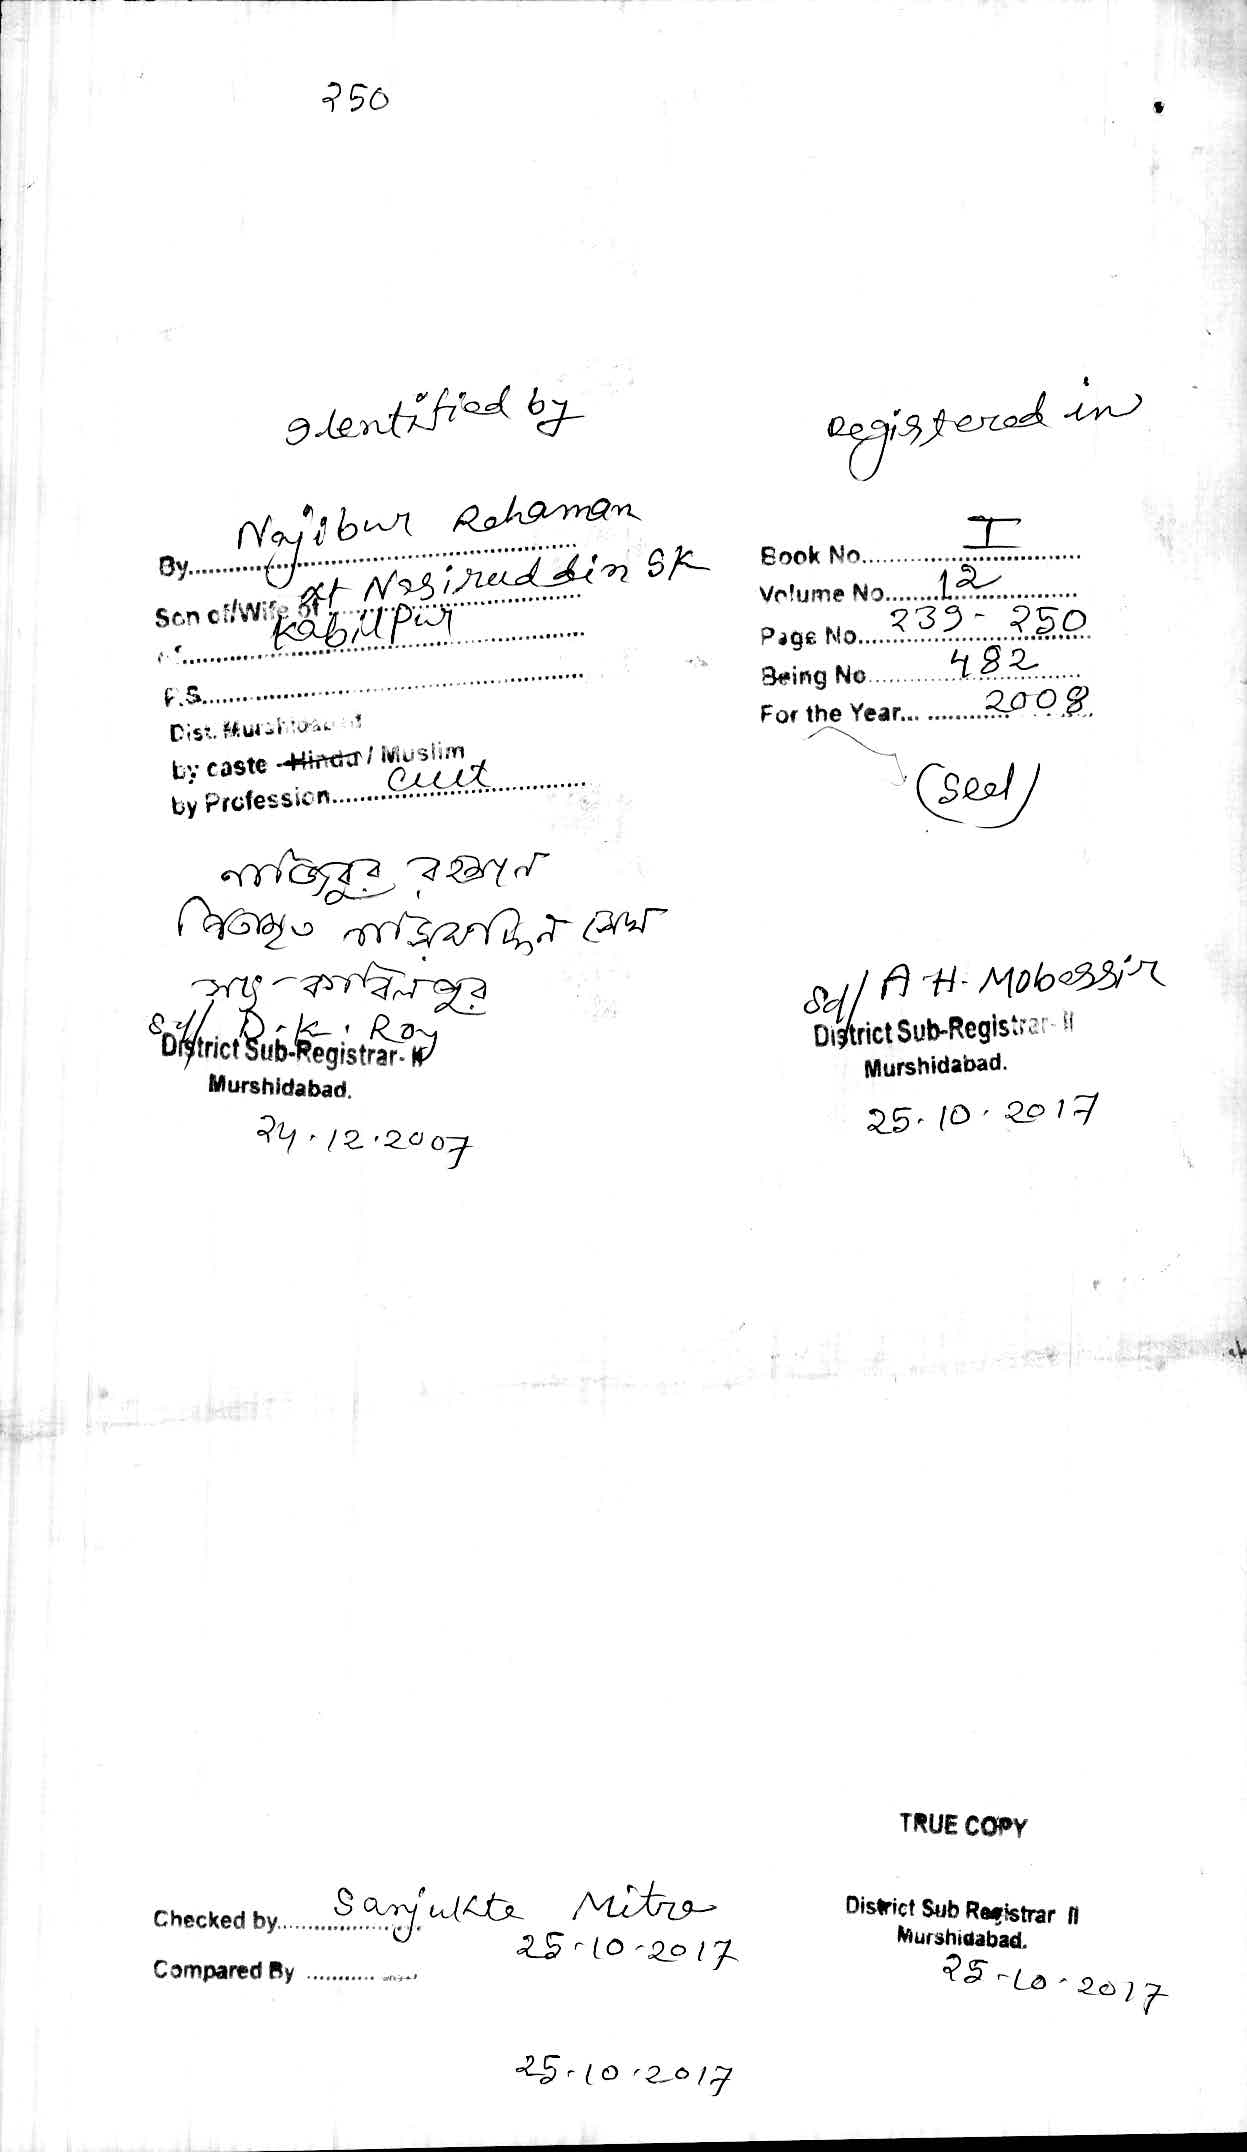 250
Identified by
By.......... Najibur Rahaman
Son of/Wife of .......... Lt Nasiruddin SK
of.......... Kabilpur
P.S..........
Dist. Murshidabad
by caste Hindu / Muslim
by Profession.......... Cult
নাজিবুর রহমান
পিতামৃত নাসিরুদ্দিন সেখ
সাং-কাবিলপুর
Sd/ D.K. Roy
District Sub-Registrar-II
Murshidabad.
24.12.2007
Registered in
Book No.......... I
Volume No.......... 12
Page No.......... 239-250
Being No.......... 482
For the Year.......... 2008
(Seal)
Sd/ A H. Mobassir
District Sub-Registrar-II
Murshidabad.
25.10.2017
TRUE COPY
District Sub Registrar II
Murshidabad.
25-10-2017
Checked by.......... Sanjukta Mitra
25-10-2017
Compared By ..........
25-10-2017